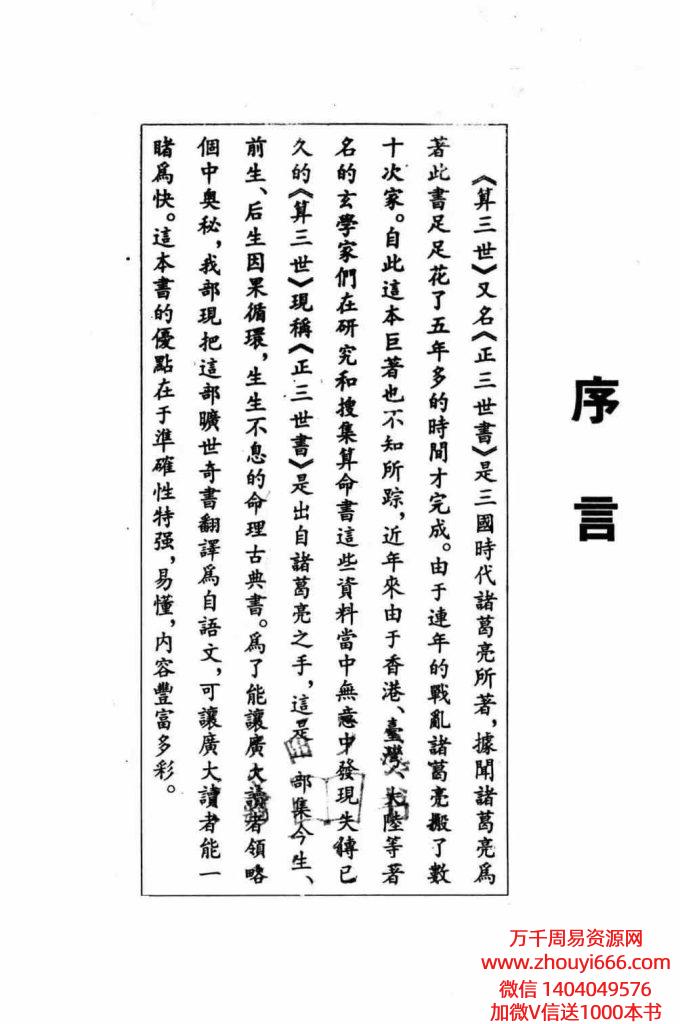 序言
《算三世》又名《正三世書》是三國時代諸葛亮所著，據聞諸葛亮爲
著此書足足花了五年多的時間才完成。由于連年的戰亂諸葛亮搬了數
十次家。自此這本巨著也不知所踪，近年來由于香港、臺灣、大陸等著
名的玄學家們在研究和搜集算命書這些資料當中無意中發現失傳已
久的《算三世》現稱《正三世書》是出自諸葛亮之手，這是一部集今生、
前生、后生因果循環，生生不息的命理古典書。爲了能讓廣大讀者領略
個中奧秘，我部現把這部曠世奇書翻譯爲自語文，可讓廣大讀者能一
睹爲快。這本書的優點在于準確性特强，易懂，内容豐富多彩。
万千周易资源网
www.zhouyi666.com
微信 1404049576
加微V信送1000本书